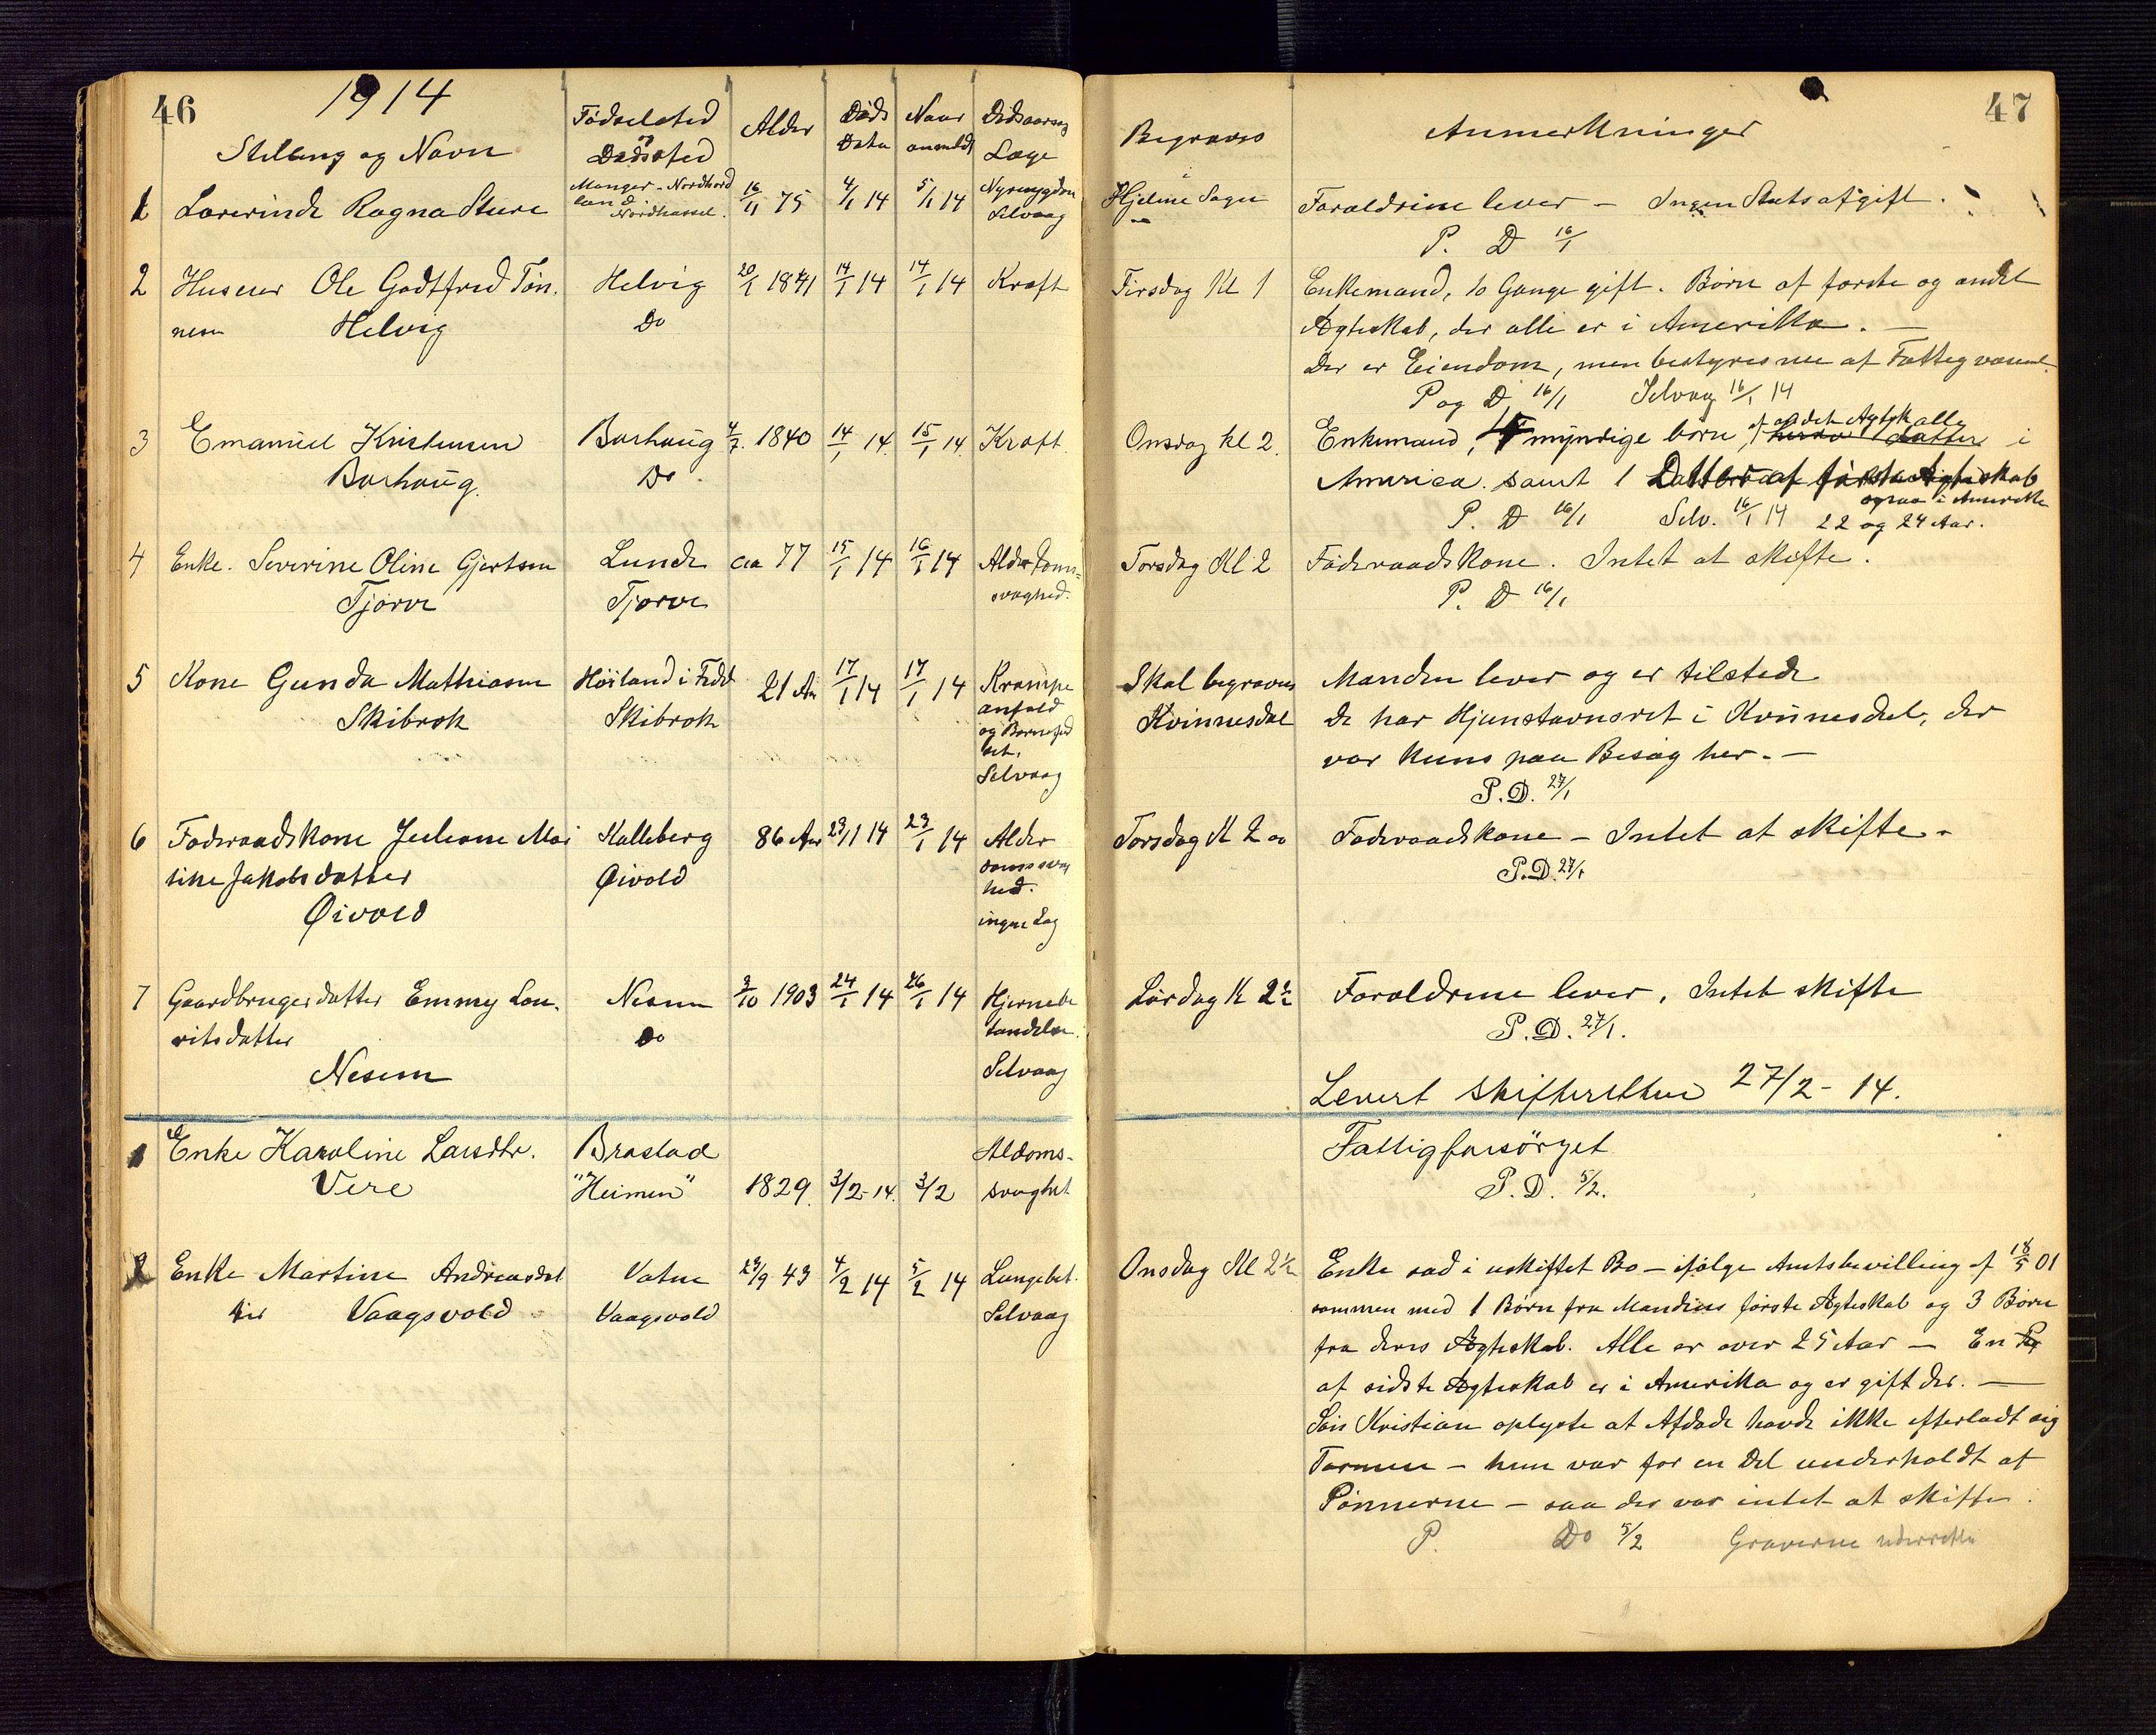 46
1914
Stilling og Navn
Fødselsted og Dødssted
Alder
Døds Dato
Naar anmeldt
Dødsaarsag Læge
Begraves
Anmerkninger
47
1 Lærerinde Ragna Sture
Manger - Nordhord
land
Nordhassel.
16/11 75
4/1 14
5/1 14
Nyresygdom
Selvaag
Hjelme Sogn
Forældrene lever - Ingen Statsafgift.
P. D 16/1
2 Huseier Ole Godtfred Tøn.
nesen Helvig
Helvig
Do
20/1 1841
14/1 14
14/1 14
Kræft
Tirsdag Kl 1
Enkemand, to Gange gift. Børn af første og andet
Ægteskab, der alle er i Amerikka. -
Der er Eiendom, men bestyres nu af Fattigvæsenet
P og D 16/1 Selvag 16/1 14
3 Emanuel Kristensen
Borhaug.
Borhaug
Do.
4/7. 1840
14/1 14.
15/1 14.
Kræft.
Onsdag kl 2.
Enkemand, 4 myndige børn, af andet Ægtsk alle i
America. samt 1 Datter af første Ægteskab
ogsaa i Amerikka
P. D 16/1 Selv. 16/1 14 22 og 24 Aar.
4 Enke. Severine Oline Gjertsen
Tjørve
Lunde
Tjørve
ca 77
15/1 14
16/1 14
Alderdoms=
svaghed.
Torsdag Kl 2
Føderaadskone. Intet at skifte.
P. D 16/1
5 Kone Gunda Mathiasen
Skibrok
Høiland i Fedd
Skibrok
21 Aar
17/1 14
17/1 14
Krampe
anfald
og Barnefød
set.
Selvaag
Skal begraves
Kvinnesdal
Manden lever og er tilstede
De har Hjemstavnsret i Kvinnesdal, der
var kuns paa Besøg her. -
P.D. 27/1
6 Føderaadskone Juliane Mar
tine Jakobsdatter
Øivold
Kalleberg
Øivold
86 Aar
23/1 14
23/1 14
Alder
domssvag
hed.
ingen Læg
Torsdag K 2 00
Føderaadskone - Intet at skifte.
P.D. 27/1
7 Gaardbrugerdatter Emmy Lau.
ritsdatter
Nesem
Nesem
Do
3/10 1903
24/1 14
26/1 14
Hjernebe
tændelse.
Selvaag
Lørdag K 2½
Forældrene lever, Intet skifte
P.D. 27/1.
Levert skifteretten 27/2 - 14.
1 Enke Karoline Larsdtr.
Vere
Brastad
"Heimen"
1829.
3/2 - 14.
3/2
Aldoms-
svaghet
Fattigforsörget
P.D. 5/2.
2 Enke Martine Andreasdat
ter Vaagsvold
Vatne
Vaagsvold
23/9 43
4/2 14
5/2 14
Lungebet.
Selvaag
Onsdag Kl 2½
Enke sad i uskiftet Bo - ifølge Amtsbevilling af 18/5 01
sammen med 1 Børn fra Mandens første Ægteskab og 3 Børn
fra deres Ægteskab. Alle er over 25 Aar - En
af sidste Ægteskab er i Amerika og er gift der. -
Søn Kristian oplyste at Afdøde havde ikke efterladt sig
Formue - hun var for en Del underholdt af
Sønnerne - saa der var intet at skifte.
P. Do 5/2 Graverne underrettet